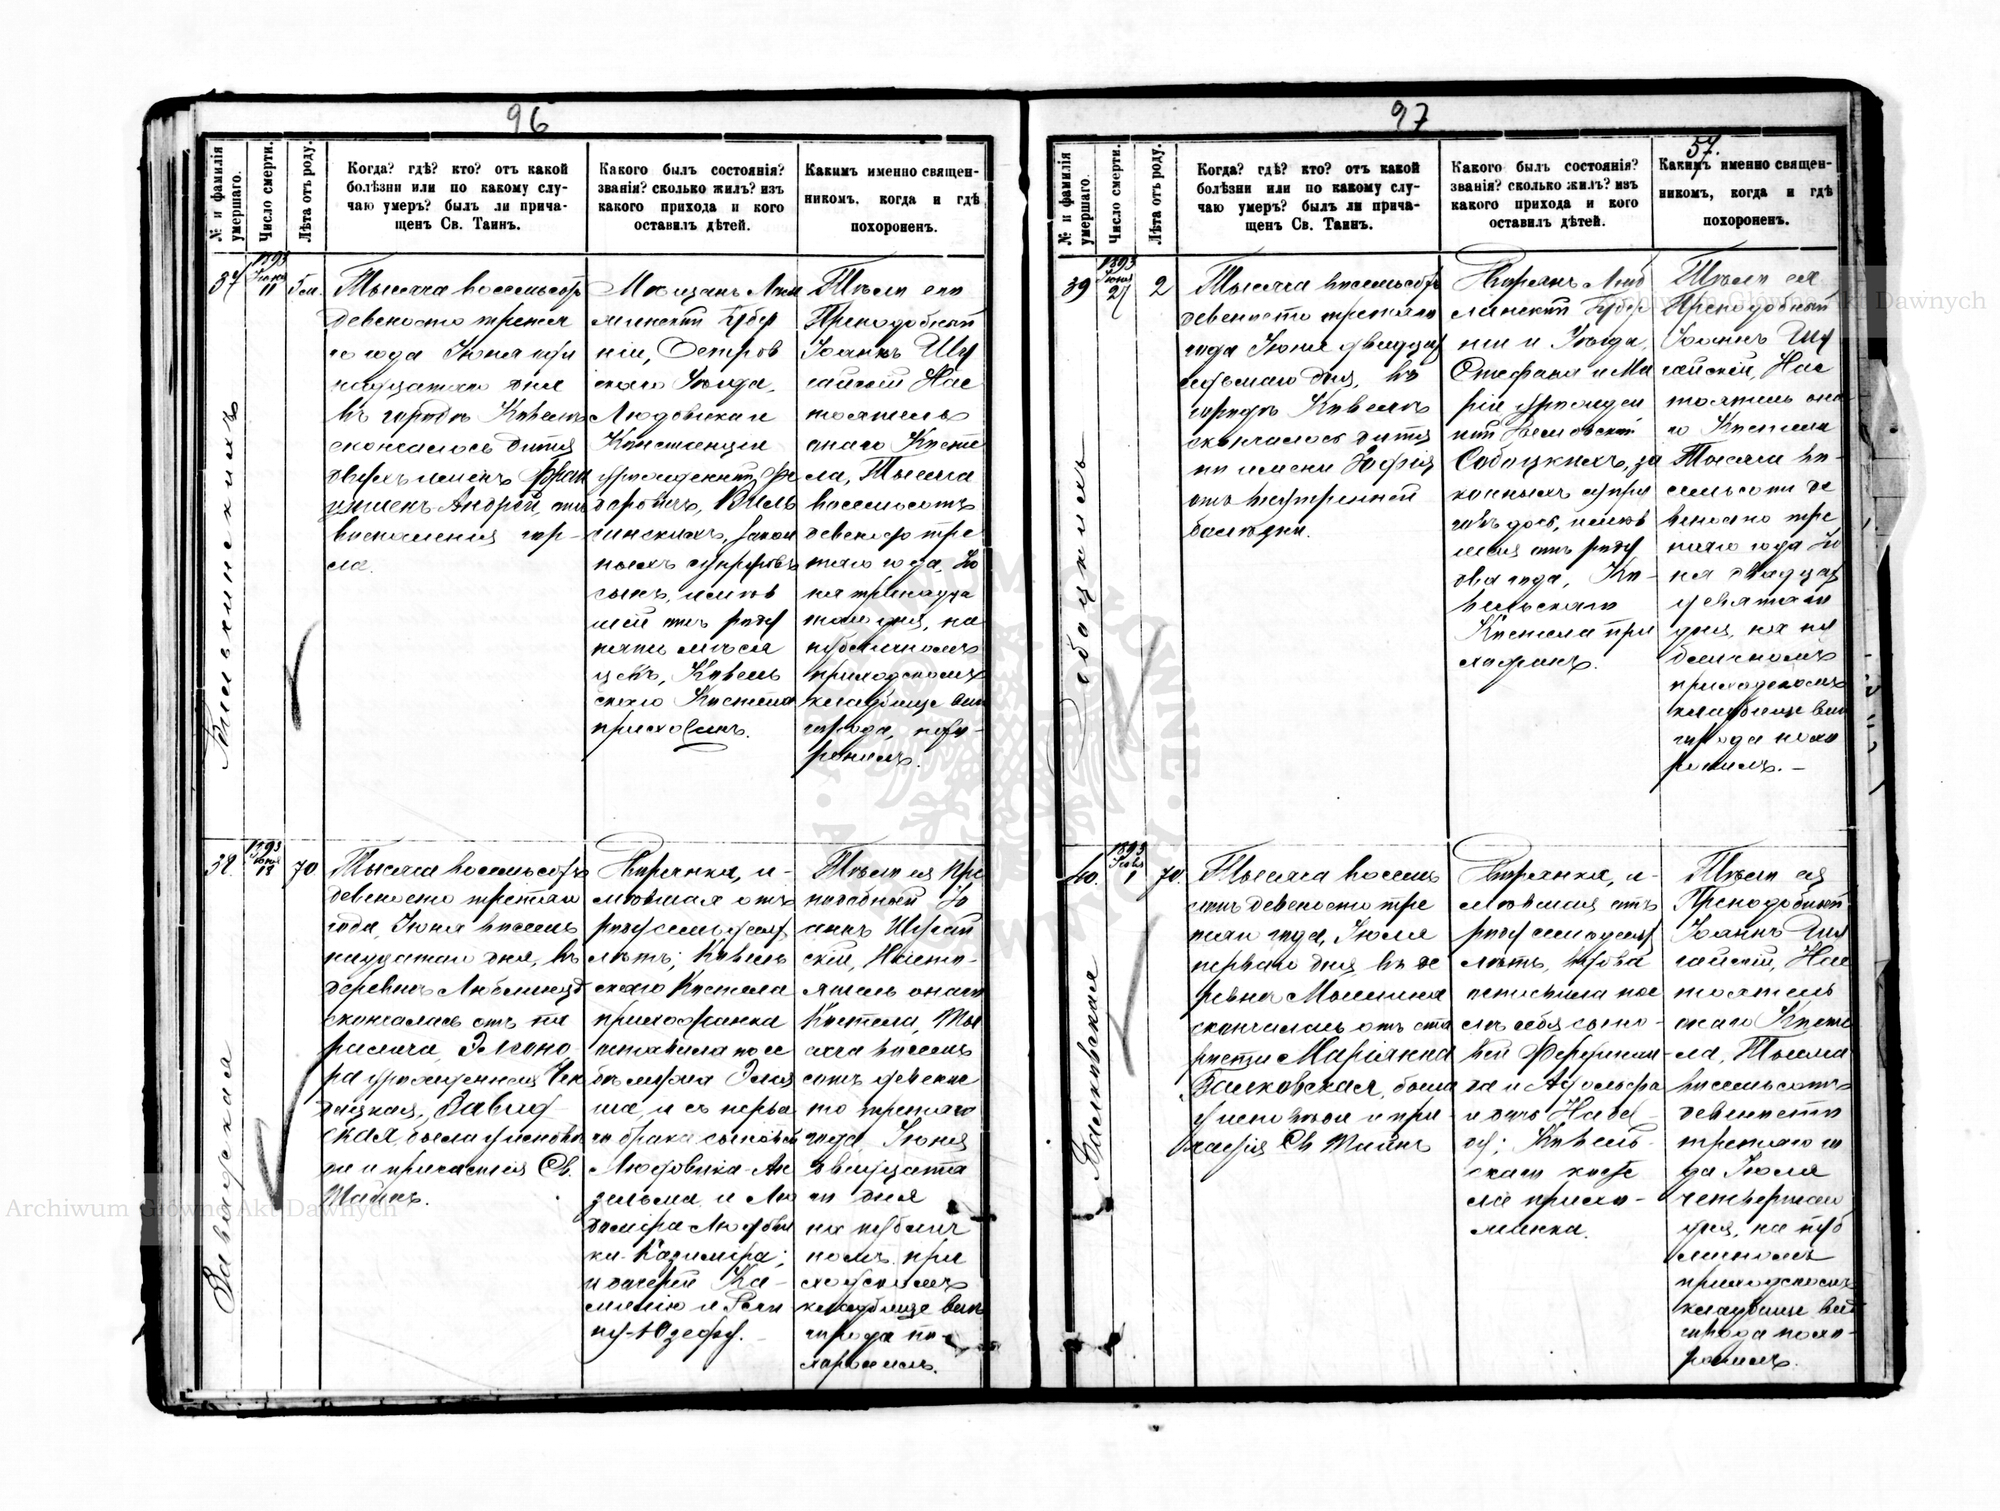 96
№ и фамилія умершаго.
Число смерти.
Лѣта отъ роду.
Когда? гдѣ? кто? отъ какой
болѣзни или по какому слу-
чаю умеръ? былъ ли прича-
щенъ Св. Таинъ.
Какого былъ состоянія?
званія? сколько жилъ? изъ
какого прихода и кого
оставилъ дѣтей.
Какимъ именно священ-
никомъ, когда и гдѣ
похороненъ.
37
1893
Іюня
11
5 м.
Тысяча восемьсотъ
девяносто третья
го года Іюня
надцатаго дня
въ городѣ Ковелѣ
скончалось дитя
двухъ именъ Фран
цишекъ Андрей, отъ
воспаленія гор-
ла.
Мѣщанъ Лом
жинской Губер
ніи, Остров
скаго Уѣзда,
Людовика и
Констанціи
урожденной
законныхъ супруговъ
сынъ, имѣв
шій отъ роду
пять мѣся
цевъ, Ковель
скаго Костела
прихожанъ.
Тѣло его
Преподобный
Іоаннъ Шу
гайскій Нас
тоятель
онаго Косте
ла, Тысяча
восемьсотъ
девяносто тре
тьяго года, Ію
ня тринадца
таго дня, на
публичномъ
приходскомъ
кладбище внѣ
города, похо-
ронилъ.
38
1893
Іюня
18
70
Завадская
Тысяча восемьсотъ
девяносто третьяго
года, Іюня восем
надцатаго дня, въ
деревнѣ Люблинецъ
скончалась отъ па
ралича, Элеоно
ра урожденная
Завад-
ская, была исповѣда
на и причастія Св.
Тайнъ.
Дворянка, и-
мѣвшая отъ
роду семьдесятъ
лѣтъ; Ковель
скаго Костела
прихожанка
оставила по се
бѣ мужа
и съ перва
го брака сыновей
Людовика-Ан
зельма и
Людви
ка-Казиміра;
и дочерей Ка-
милію и
ну-Юзефу.
Тѣло ея Пре
подобный Іо
аннъ Шугай
скій, Насто-
ятель онаго
Костела, Тыс
яча восемь
сотъ девянос
то третьяго
года Іюня
двадцата
го дня
на публич
номъ при
ходскомъ
кладбище внѣ
города по-
хоронилъ.
97
57.
№ и фамилія умершаго.
Число смерти.
Лѣта отъ роду.
Когда? гдѣ? кто? отъ какой
болѣзни или по какому слу-
чаю умеръ? былъ ли прича-
щенъ Св. Таинъ.
Какого былъ состоянія?
званія? сколько жилъ? изъ
какого прихода и кого
оставилъ дѣтей.
Какимъ именно священ-
никомъ, когда и гдѣ
похороненъ.
39
1893
Іюня
27
2
Собоцкихъ
Тысяча восемьсотъ
девяносто третьяго
года Іюня двадцать
седьмаго дня, въ
городѣ Ковелѣ
скончалось дитя
по имени Зофія
отъ внутренней
болѣзни.
Дворянъ Люб
линской Губер
ніи и Уѣзда,
Стефана и Ма
ріи урожден
ной
Собоцкихъ, за
конныхъ супру
говъ дочь, имѣв
шая отъ роду
два года, Ко-
вельскаго
Костела при
хожанъ.
Тѣло ея
Преподобный
Іоаннъ Шу
гайскій, Нас
тоятель она
го Костела
Тысяча во-
семьсотъ де
вяносто тре
тьяго года Ію
ня двадцать
девятаго
дня, на пу
бличномъ
приходскомъ
кладбище внѣ
города похо
ронилъ. —
40.
1893
Іюля
1
70.
Валковская
Тысяча восемь
сотъ девяносто тре
тьяго года, Іюля
перваго дня въ де
ревнѣ
скончалась отъ ста
рости Маріянна
Валковская, была
исповѣдана и при
частія Св Тайнъ
Дворянка, и-
мѣвшая отъ
роду семьдесятъ
лѣтъ, вдова
оставила пос
лѣ себя сыно-
вей Фердинан-
да и Адольфа
и дочь
Ковель
скаго косте
ла прихо-
жанка.
Тѣло ея
Преподобный
Іоаннъ Шу
гайскій, Нас
тоятель
онаго Косте
ла, Тысяча
восемьсотъ
девяносто
третьяго го
да Іюля
четвертаго
дня, на пуб
личномъ
приходскомъ
кладбище внѣ
города похо-
ронилъ.
Archiwum Główne Akt Dawnych
Archiwum Główne Akt Dawnych